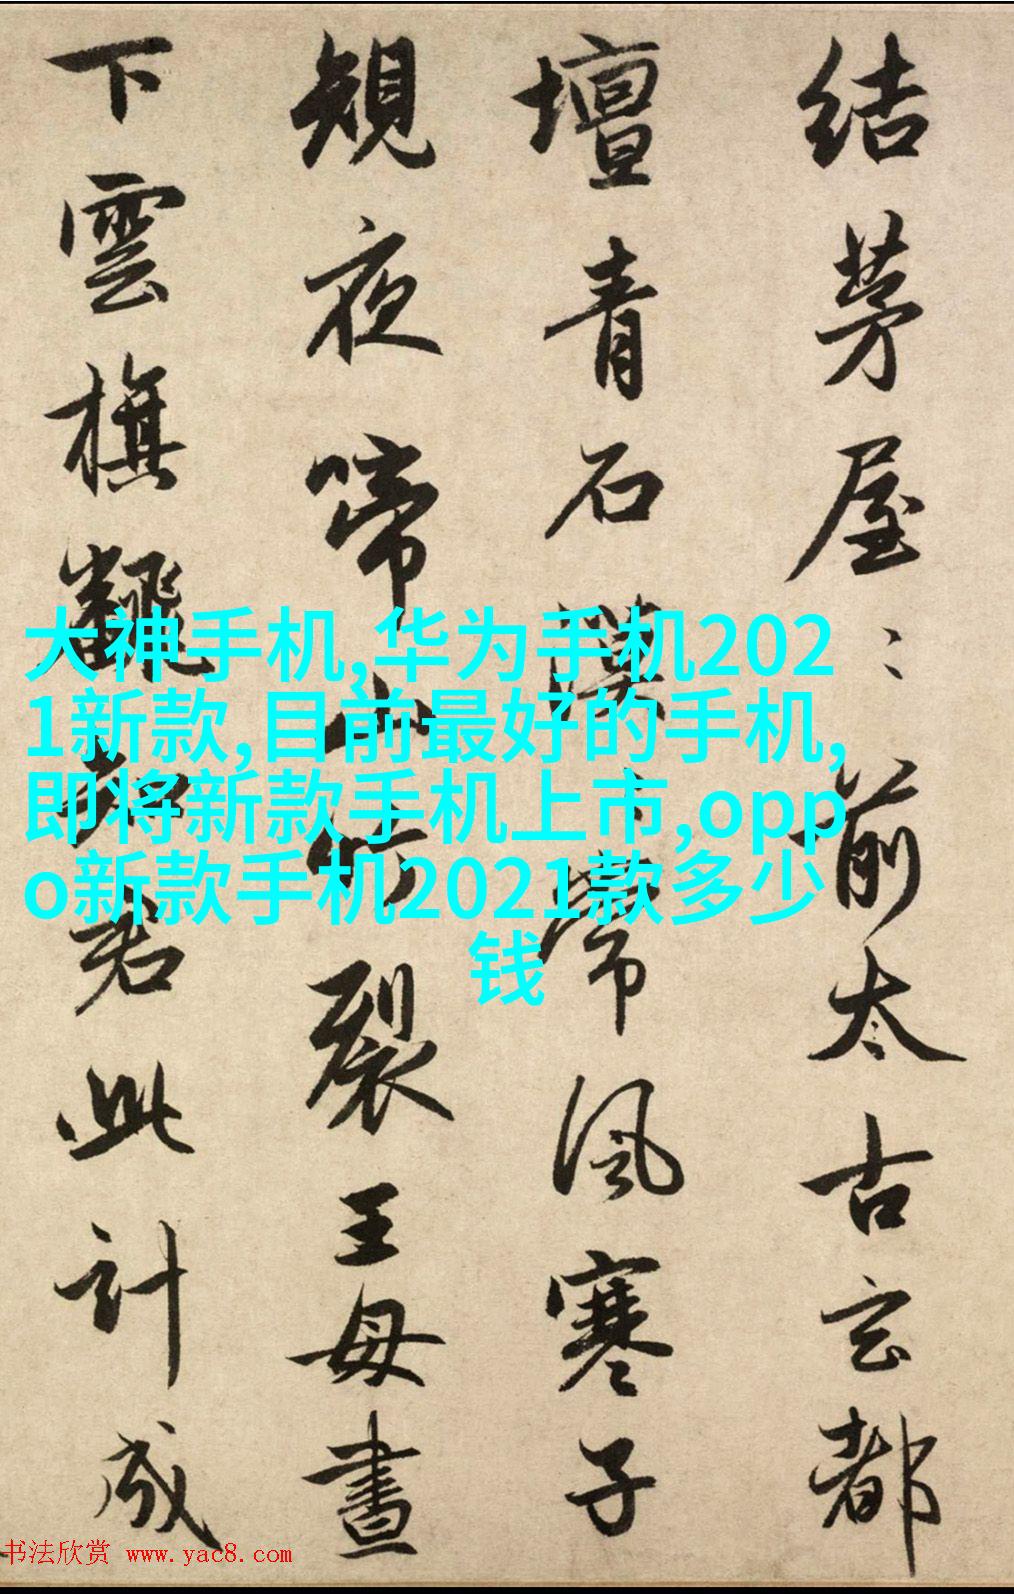 結茅屋〻前太古玄都
壇青石漠〻常風寒子
規夜啼山竹裂王母晝
下雲旗飜知君此計成
大神手机,华为手机202
1新款,目前最好的手机,
即将新款手机上市,opp
o新款手机2021款多少
钱
书法欣赏 www.yac8.com